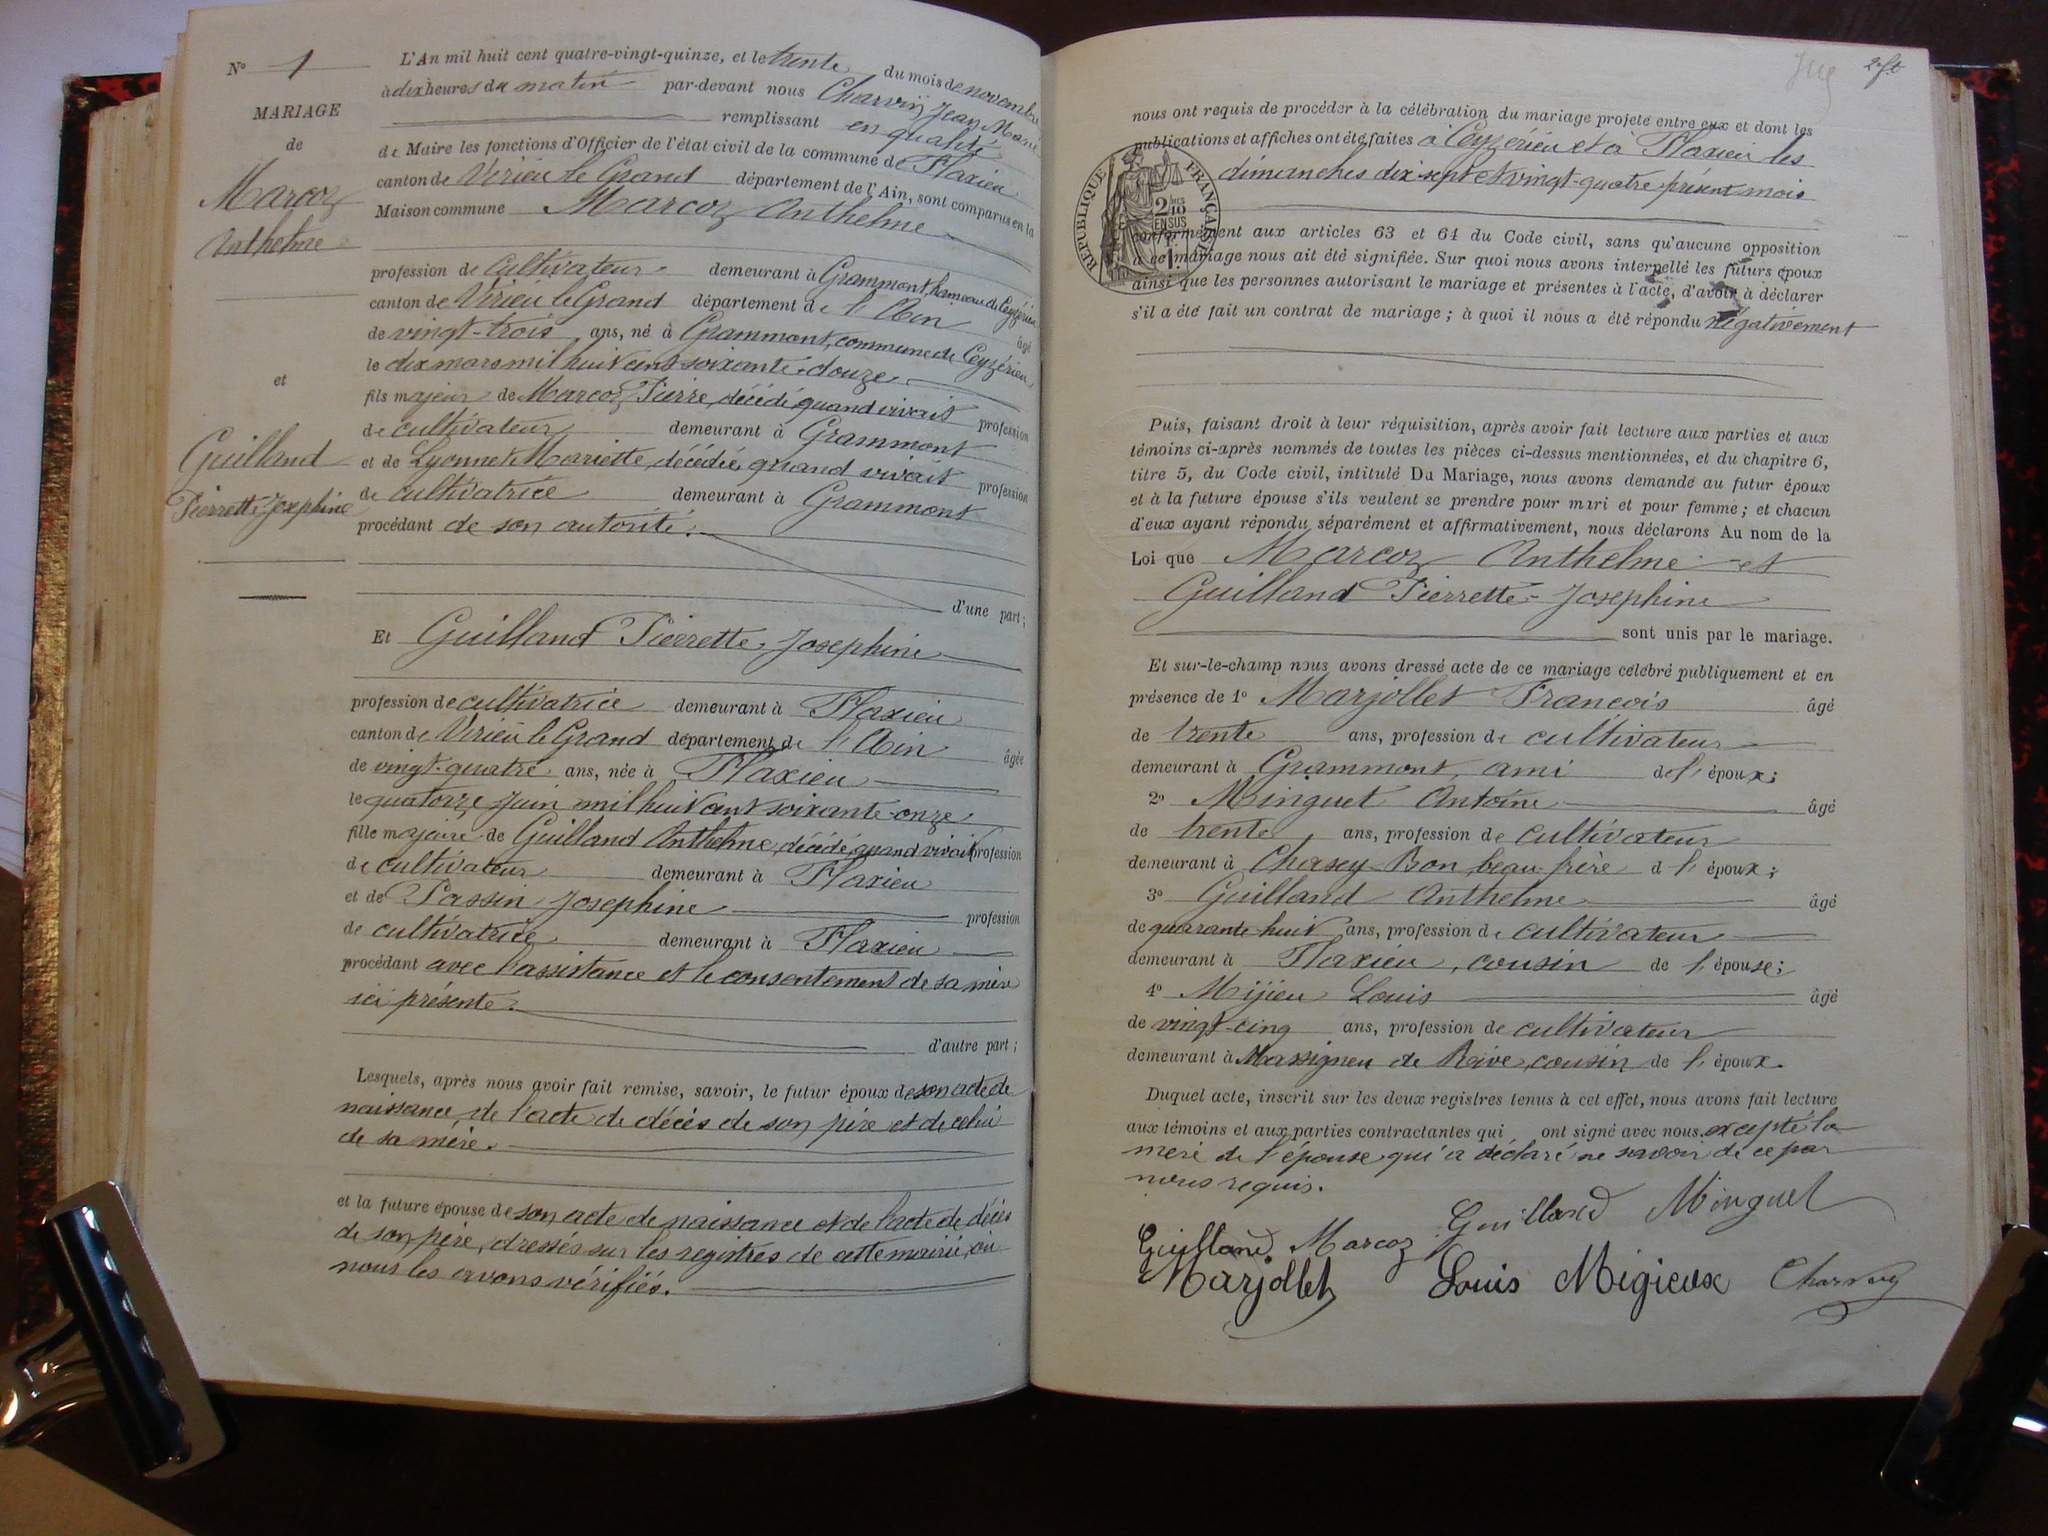 N° 1
MARIAGE
de
Marcoz
Anthelme
et
Guilland
Pierrette-Josephine
L'An mil huit cent quatre-vingt-quinze, et le trente du mois de novembre
à dix heures du matin par-devant nous Charvy Jean Marie
remplissant en qualité
de Maire les fonctions d'Officier de l'état civil de la commune de Flaxieu
canton de Virieu le Grand département de l'Ain, sont comparus en la
Maison commune Marcoz Anthelme
profession de cultivateur demeurant à Grammont, hameau de Ceyzérieu
canton de Virieu le Grand département de l'Ain âgé
de vingt-trois ans, né à Grammont, commune de Ceyzérieu
le dix mars mil huit cent soixante-douze
fils majeur de Marcoz Pierre, décédé, quand vivait profession
de cultivateur demeurant à Grammont
et de Lyonnet Mariette, décédée, quand vivait profession
de cultivatrice demeurant à Grammont
procédant de son autorité.
d'une part;
Et Guilland Pierrette-Josephine
profession de cultivatrice demeurant à Flaxieu
canton de Virieu le Grand département de l'Ain âgée
de vingt-quatre ans, née à Flaxieu
le quatorze juin mil huit cent soixante-onze
fille majeure de Guilland Anthelme, décédé, quand vivait profession
de cultivateur demeurant à Flaxieu
et de Passin Josephine profession
de cultivatrice demeurant à Flaxieu
procédant avec l'assistance et le consentement de sa mère
ici présente.
d'autre part;
Lesquels, après nous avoir fait remise, savoir, le futur époux de son acte de
naissance, de l'acte de décès de son père et de celui
de sa mère.
et la future épouse de son acte de naissance et de l'acte de décès
de son père, dressés sur les registres de cette mairie, où
nous les avons vérifiés.
nous ont requis de procéder à la célébration du mariage projeté entre eux et dont les
publications et affiches ont été faites à Ceyzérieu et à Flaxieu les
dimanches dix-sept et vingt-quatre présent mois
RÉPUBLIQUE FRANÇAISE
2/10
EN SUS
conformément aux articles 63 et 64 du Code civil, sans qu'aucune opposition
à ce mariage nous ait été signifiée. Sur quoi nous avons interpellé les futurs époux
ainsi que les personnes autorisant le mariage et présentes à l'acte, d'avoir à déclarer
s'il a été fait un contrat de mariage; à quoi il nous a été répondu négativement
Puis, faisant droit à leur réquisition, après avoir fait lecture aux parties et aux
témoins ci-après nommés de toutes les pièces ci-dessus mentionnées, et du chapitre 6,
titre 5, du Code civil, intitulé Du Mariage, nous avons demandé au futur époux
et à la future épouse s'ils veulent se prendre pour mari et pour femme; et chacun
d'eux ayant répondu séparément et affirmativement, nous déclarons Au nom de la
Loi que Marcoz Anthelme et
Guilland Pierrette-Josephine
sont unis par le mariage.
Et sur-le-champ nous avons dressé acte de ce mariage célébré publiquement et en
présence de 1° Marjollet François âgé
de trente ans, profession de cultivateur
demeurant à Grammont, ami de l'époux;
2° Minguet Antoine âgé
de trente ans, profession de cultivateur
demeurant à Chasey-Bon, beau-frère d l'époux;
3° Guilland Anthelme âgé
de quarante-huit ans, profession de cultivateur
demeurant à Flaxieu, cousin de l'épouse;
4° Mijieu Louis âgé
de vingt-cinq ans, profession de cultivateur
demeurant à Massignieu de Rive, cousin de l'époux.
Duquel acte, inscrit sur les deux registres tenus à cet effet, nous avons fait lecture
aux témoins et aux parties contractantes qui ont signé avec nous, excepté la
mère de l'épouse qui a déclaré ne savoir de ce par
nous requis.
Guilland Minguet
Guilland Marcoz
Marjollet Louis Migieux Charvy